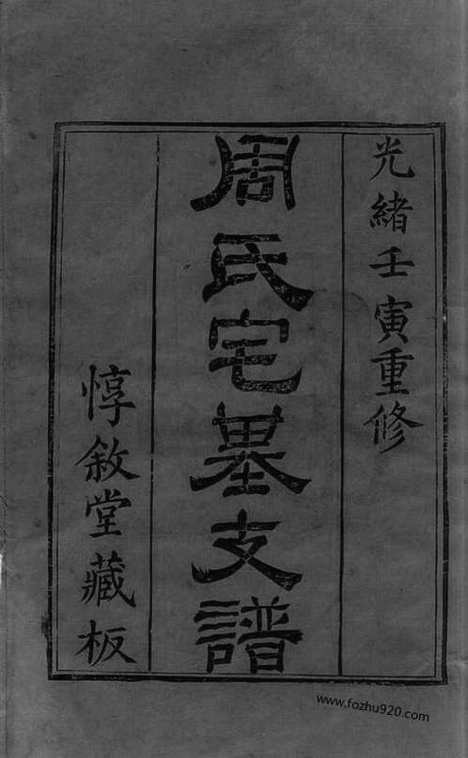 光緒壬寅重修
周氏宅墓支譜
惇敘堂藏板
www.fozhu920.com